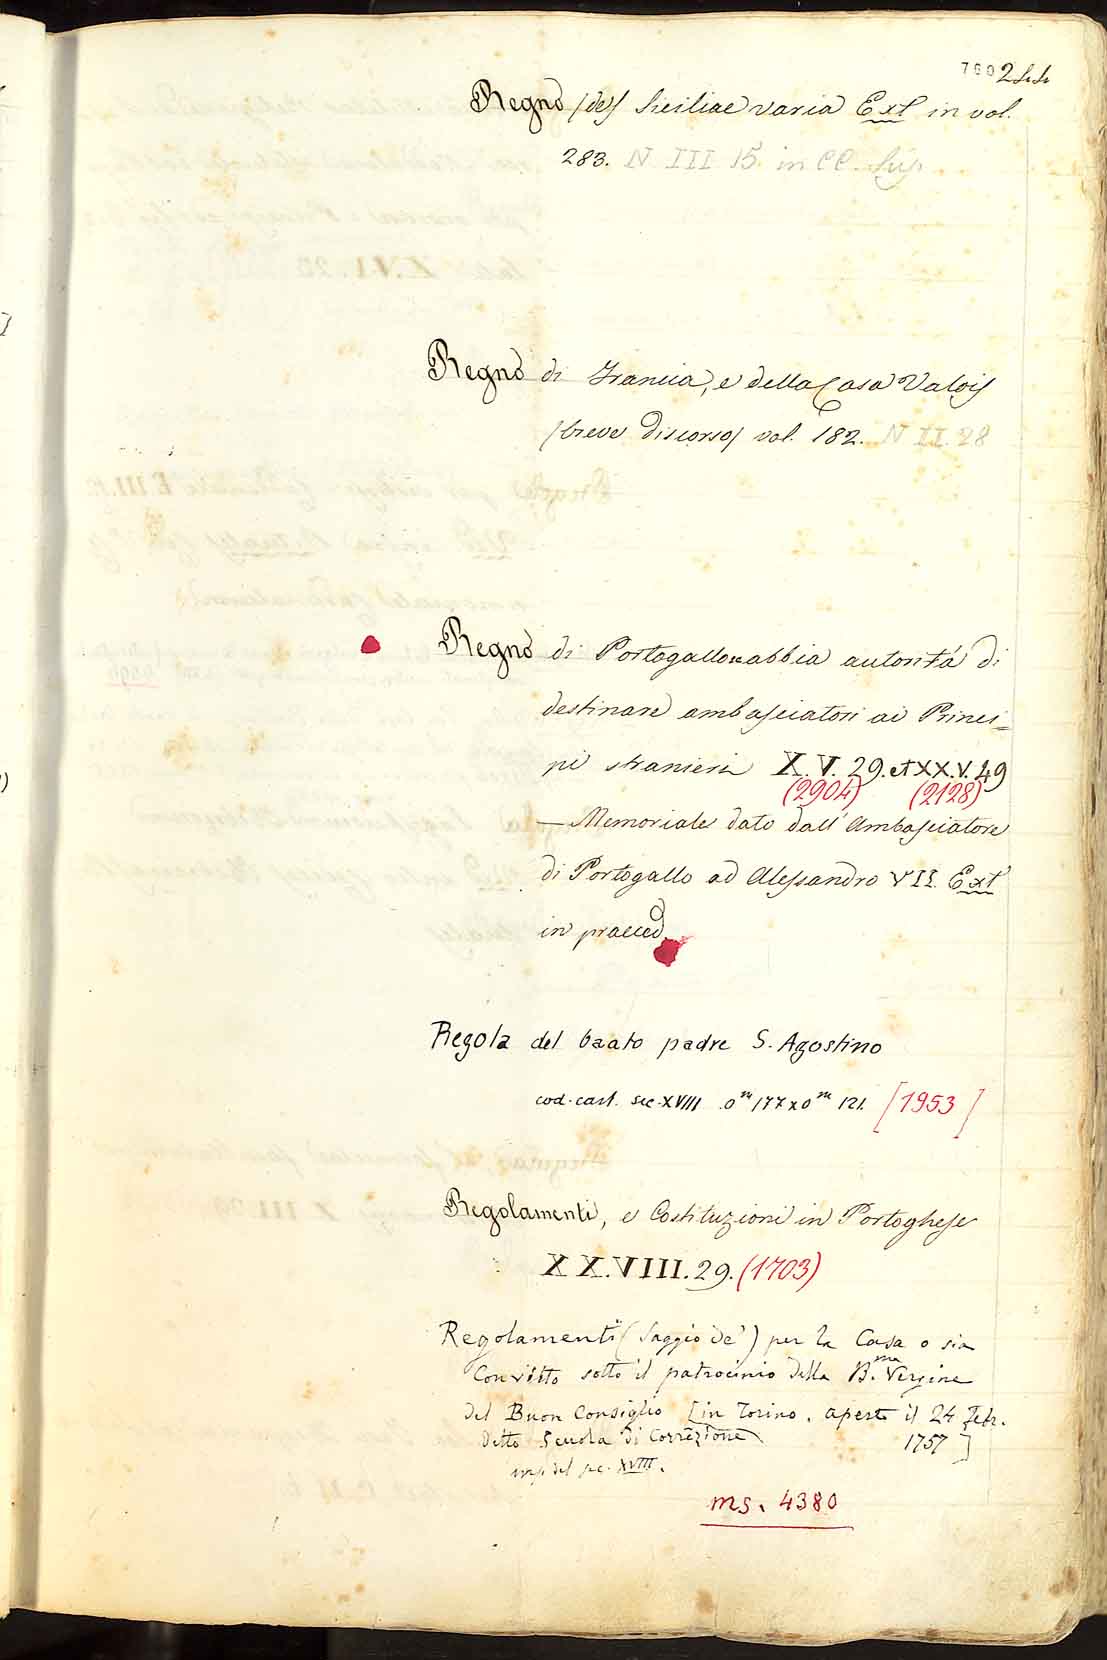 760 244
Regno (de) Siciliae varia Ext in vol.
283. N III 15. in CC. Sup.
Regno di Francia, e della Casa Valois
(breve discorso) vol. 182. N II. 28
Regno di Portogallo abbia autorità di
destinare ambasciatori ai Princi=
pi stranieri X. V. 29. et XX. V. 49
(2904) (2128)
— Memoriale dato dall' Ambasciatore
di Portogallo ad Alessandro VII. Ext
in praeced.
Regola del beato padre S. Agostino
cod. cart. sec. XVIII 0m 177 x 0m 121. [1953]
Regolamenti, e Costituzioni in Portoghese
XX.VIII.29. (1703)
Regolamenti (Saggio de') per la Casa o sia
Convitto sotto il patrocinio della B.ma Vergine
del Buon Consiglio [in Torino, aperto il 24 Febr.
detto Scuola di Correzione 1757]
msс. del sec. XVIII.
ms. 4380